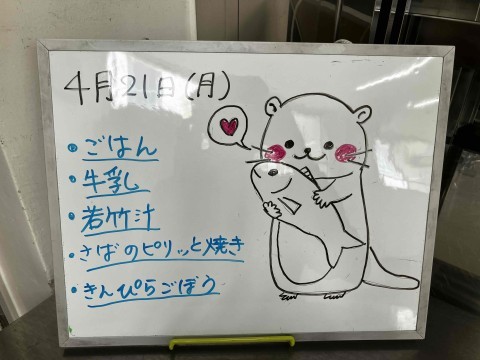 4月21日(月)
・ごはん
・牛乳
・若竹汁
・さばのピリッと焼き
・きんぴらごぼう